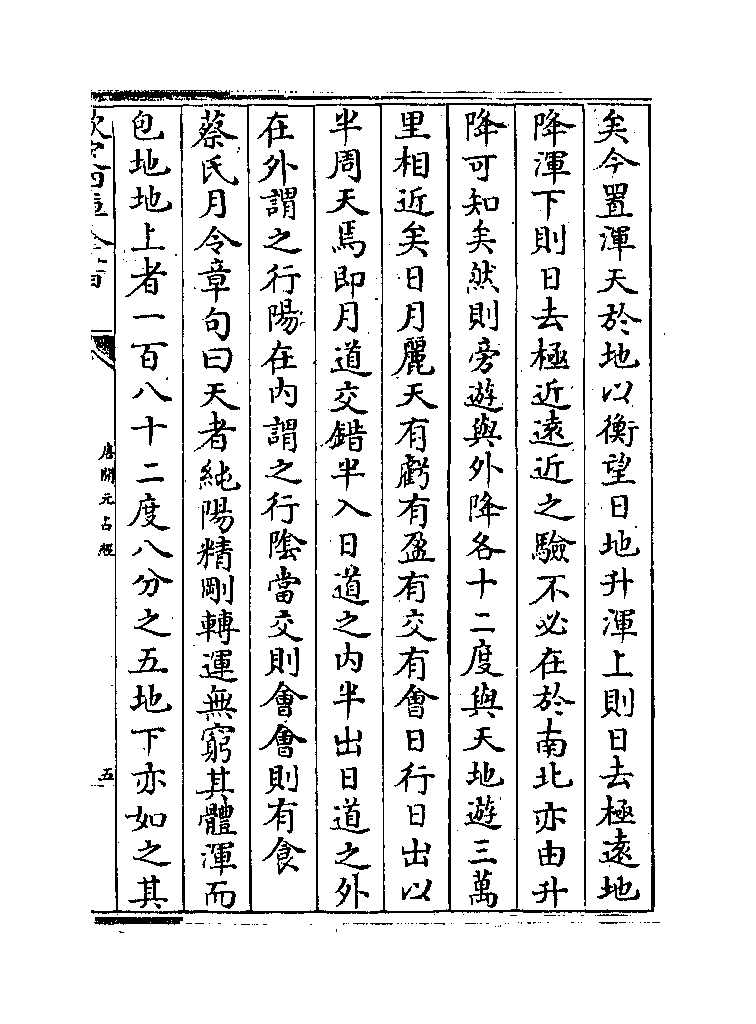 矣今置渾天於地以衡望日地升渾上則日去極遠地
降渾下則日去極近遠近之驗不必在於南北亦由升
降可知矣然則旁遊與外降各十二度與天地遊三萬
里相近矣日月麗天有虧有盈有交有會日行日出以
半周天焉即月道交錯半入日道之内半出日道之外
在外謂之行陽在内謂之行隂當交則會會則有食
蔡氏月令章句曰天者純陽精剛轉運無窮其體渾而
包地地上者一百八十二度八分之五地下亦如之其
唐開元占經
五